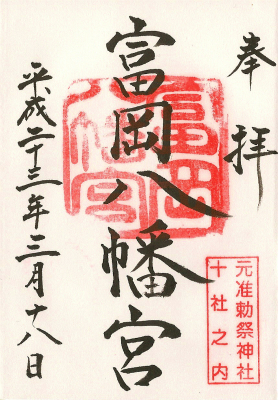 奉拝
富岡八幡宮
富岡八幡宮
元准勅祭神社
十社之内
平成二十三年三月十八日